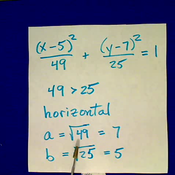 (x-5)²/49 + (y-7)²/25 = 1
49 > 25
horizontal
a = √49 = 7
b = √25 = 5